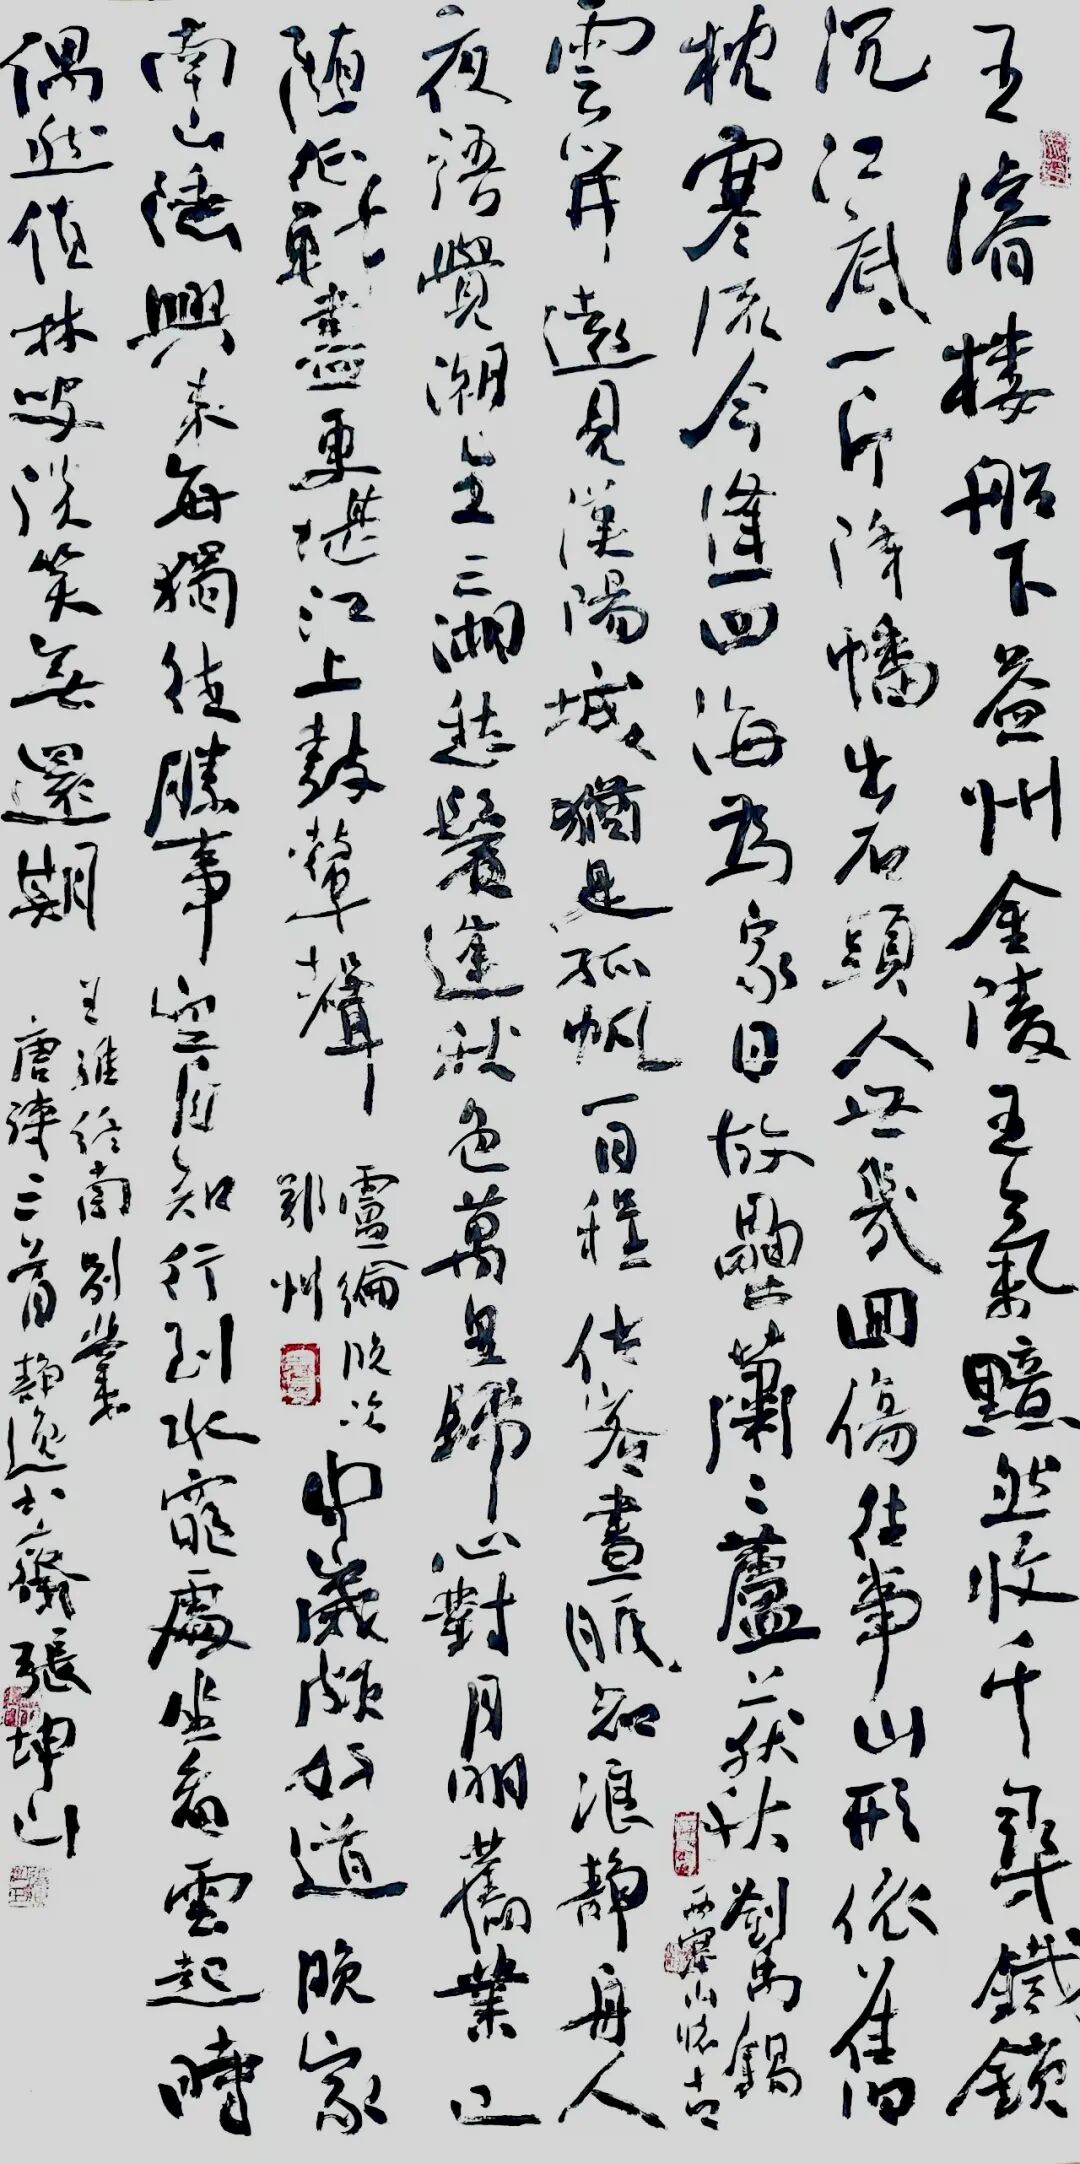 王濬樓船下益州金陵王氣黯然收千尋鐵鎖
沉江底一片降幡出石頭人世幾回傷往事山形依舊
枕寒流今逢四海為家日故壘蕭〻蘆荻秋
劉禹錫
西塞山懷古
雲開遠見漢陽城猶是孤帆一日程估客晝眠知浪靜舟人
夜語覺潮生三湘愁鬢逢秋色萬里歸心對月明舊業已
隨征戰盡更堪江上鼓鼙聲
盧綸晚次
鄂州
中歲頗好道晚家
南山陲興來每獨往勝事空自知行到水窮處坐看雲起時
偶然值林叟談笑無還期
王維終南別業
唐詩三首靜逸書齋張坤山